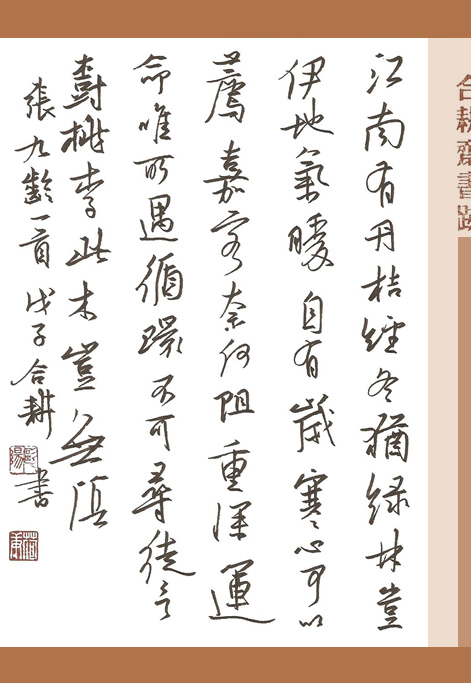 合耕齋書跡
江南有丹桔經冬猶緑林豈
伊地氣暖自有歲寒心可以
薦嘉客奈何阻重深運
命唯所遇循環不可尋徒言
樹桃李此木豈無陰
張九齡一首 戊子 合耕書